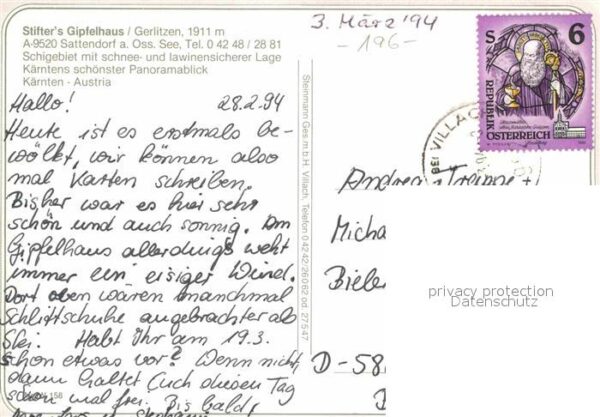 Stifter's Gipfelhaus / Gerlitzen, 1911 m
A-9520 Sattendorf a. Oss. See, Tel. 0 42 48 / 28 81
Schigebiet mit schnee- und lawinensicherer Lage
Kärntens schönster Panoramablick
Kärnten - Austria
Hallo! 28.2.94
Heute ist es erstmals be-
wölkt, wir können also
mal Karten schreiben.
Bisher war es hier sehr
schön und auch sonnig. Am
Gipfelhaus allerdings weht
immer ein eisiger Wind.
Dort oben wären manchmal
Schlittschuhe angebrachter als
Ski. Habt Ihr am 19.3.
schon etwas vor? Wenn nicht,
dann haltet Euch diesen Tag
schon mal frei. Bis bald!
156
Steinmann Ges.m.b.H. Villach, Telefon 0 42 42/26062 od. 27547
3. März '94
-196-
S 6
REPUBLIK
ÖSTERREICH
BEI VILLACH
Andrea
Micha
Biele
D-58
privacy protection
Datenschutz